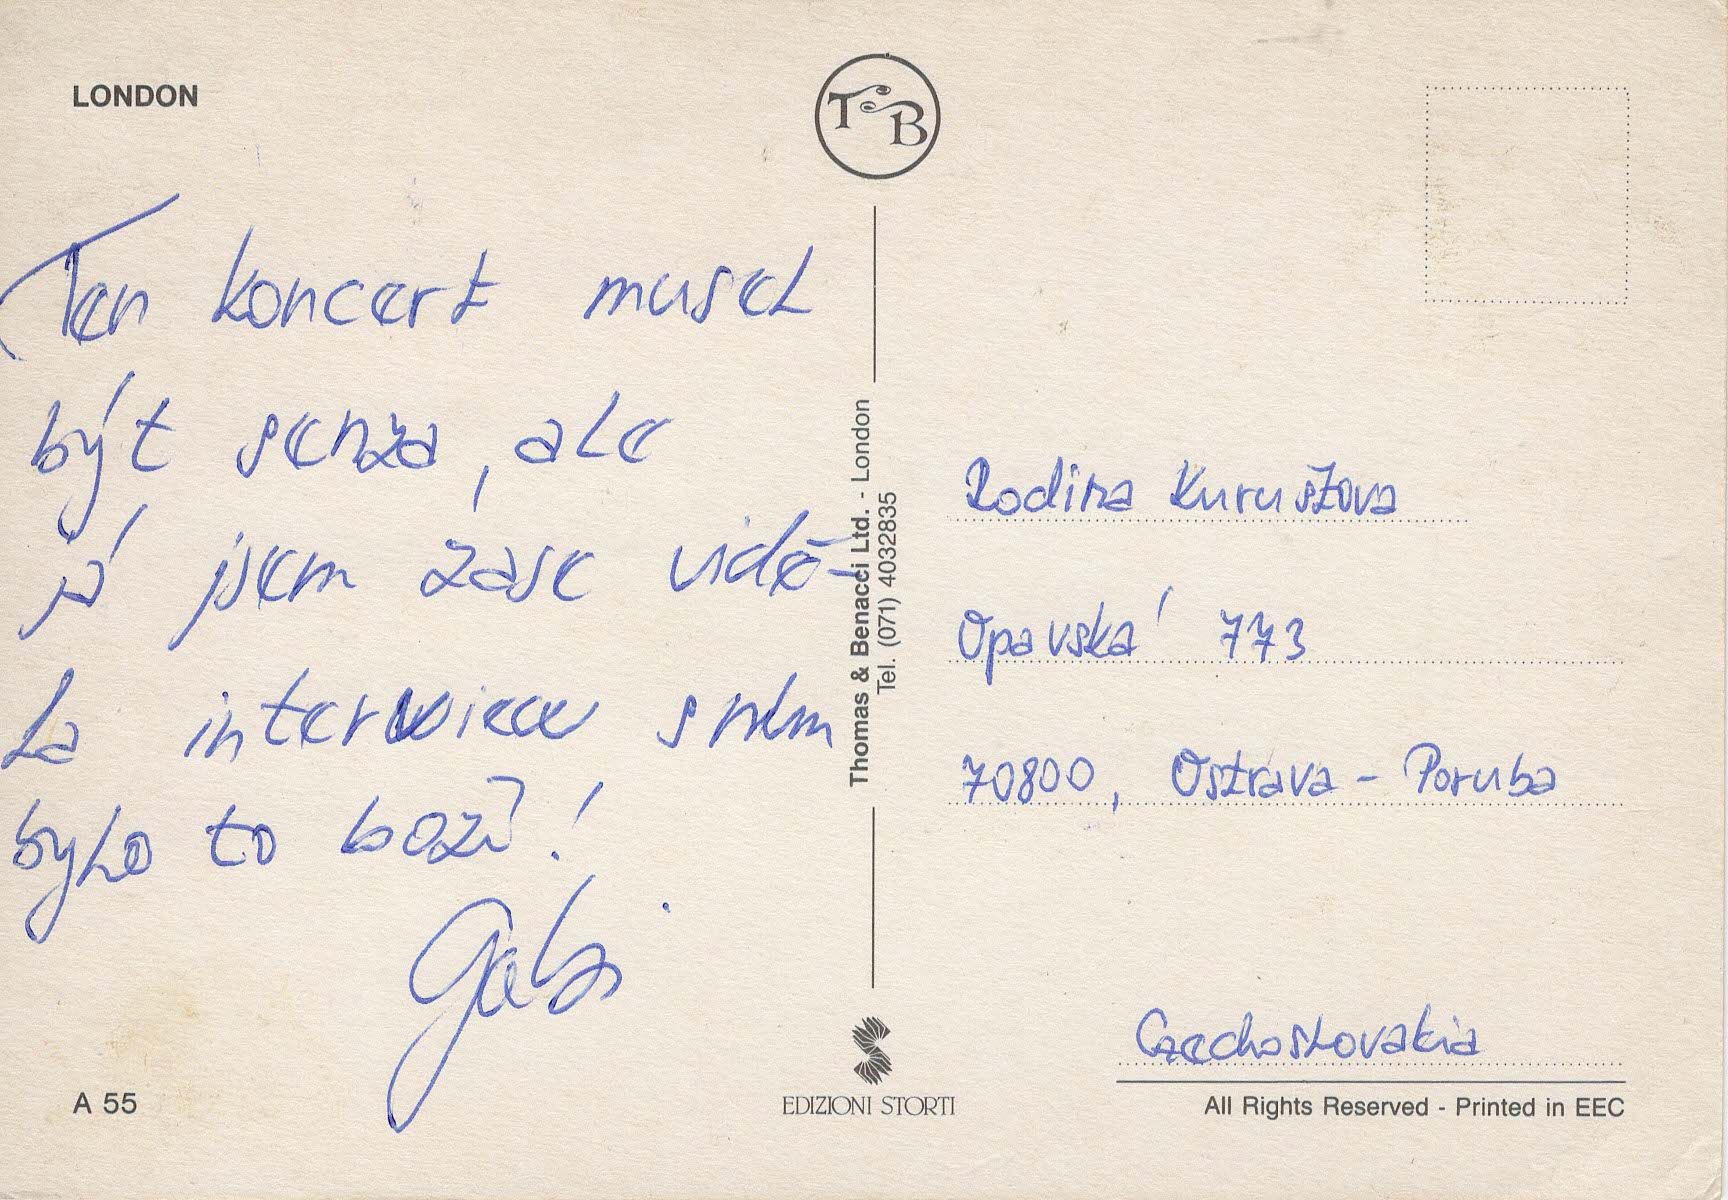 LONDON
T&B
Ten koncert musel
být senza, ale
já jsem zase vidě-
la interwiew s ním
bylo to boží!
Gabi
A 55
Thomas & Benacci Ltd. - London
Tel. (071) 4032835
EDIZIONI STORTI
Rodina Kuruszova
Opavská 773
70800, Ostrava - Poruba
Czechoslovakia
All Rights Reserved - Printed in EEC